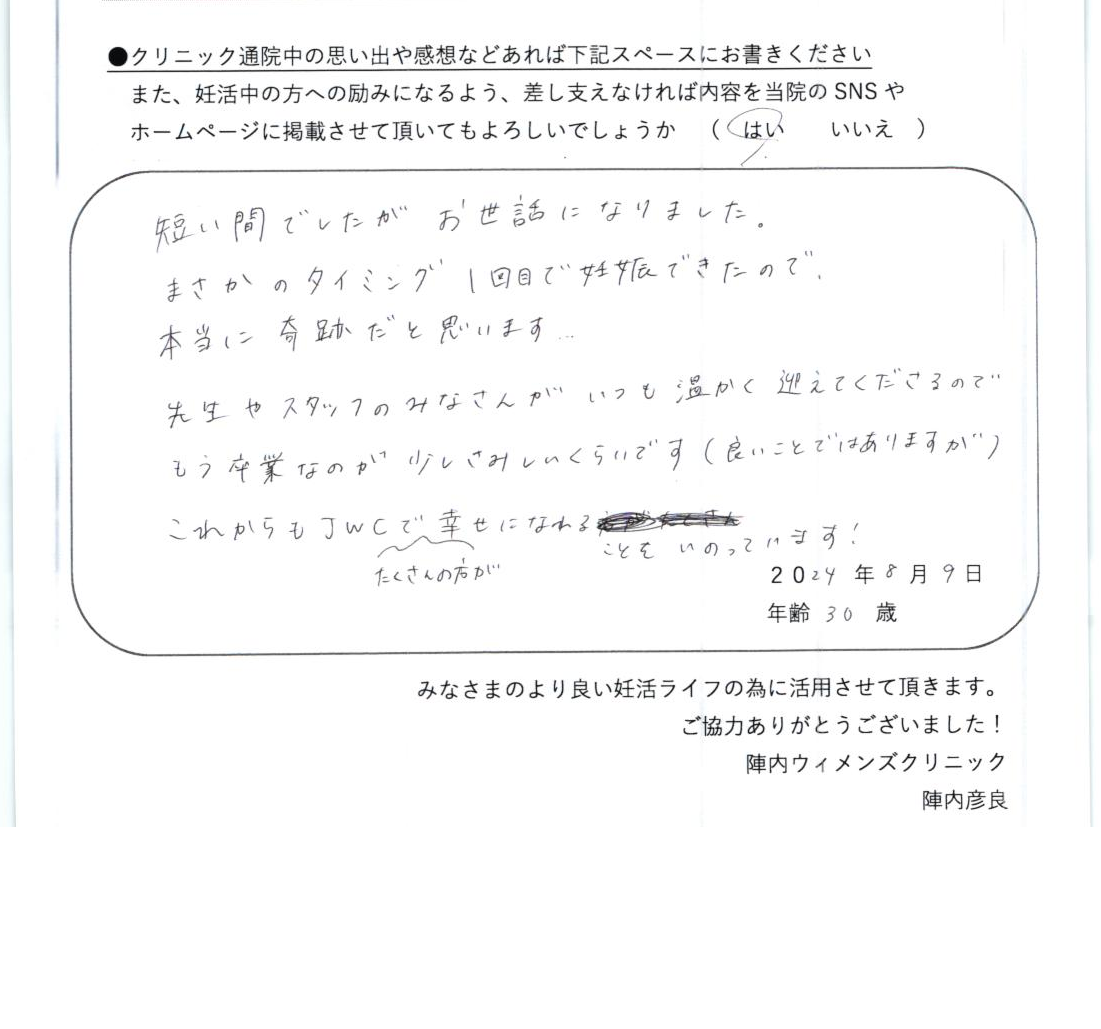 ●クリニック通院中の思い出や感想などあれば下記スペースにお書きください
また、妊活中の方への励みになるよう、差し支えなければ内容を当院のSNSや
ホームページに掲載させて頂いてもよろしいでしょうか （ はい いいえ ）
短い間でしたが お世話になりました。
まさかのタイミング 1回目で妊娠できたので、
本当に奇跡だと思います…
先生やスタッフのみなさんが いつも温かく迎えてくださるので
もう卒業なのが少しさみしいくらいです(良いことではありますが)
これからもJWCで幸せになれる
ことをいのっています!
たくさんの方が
2024 年 8 月 9 日
年齢 30 歳
みなさまのより良い妊活ライフの為に活用させて頂きます。
ご協力ありがとうございました！
陣内ウィメンズクリニック
陣内彦良